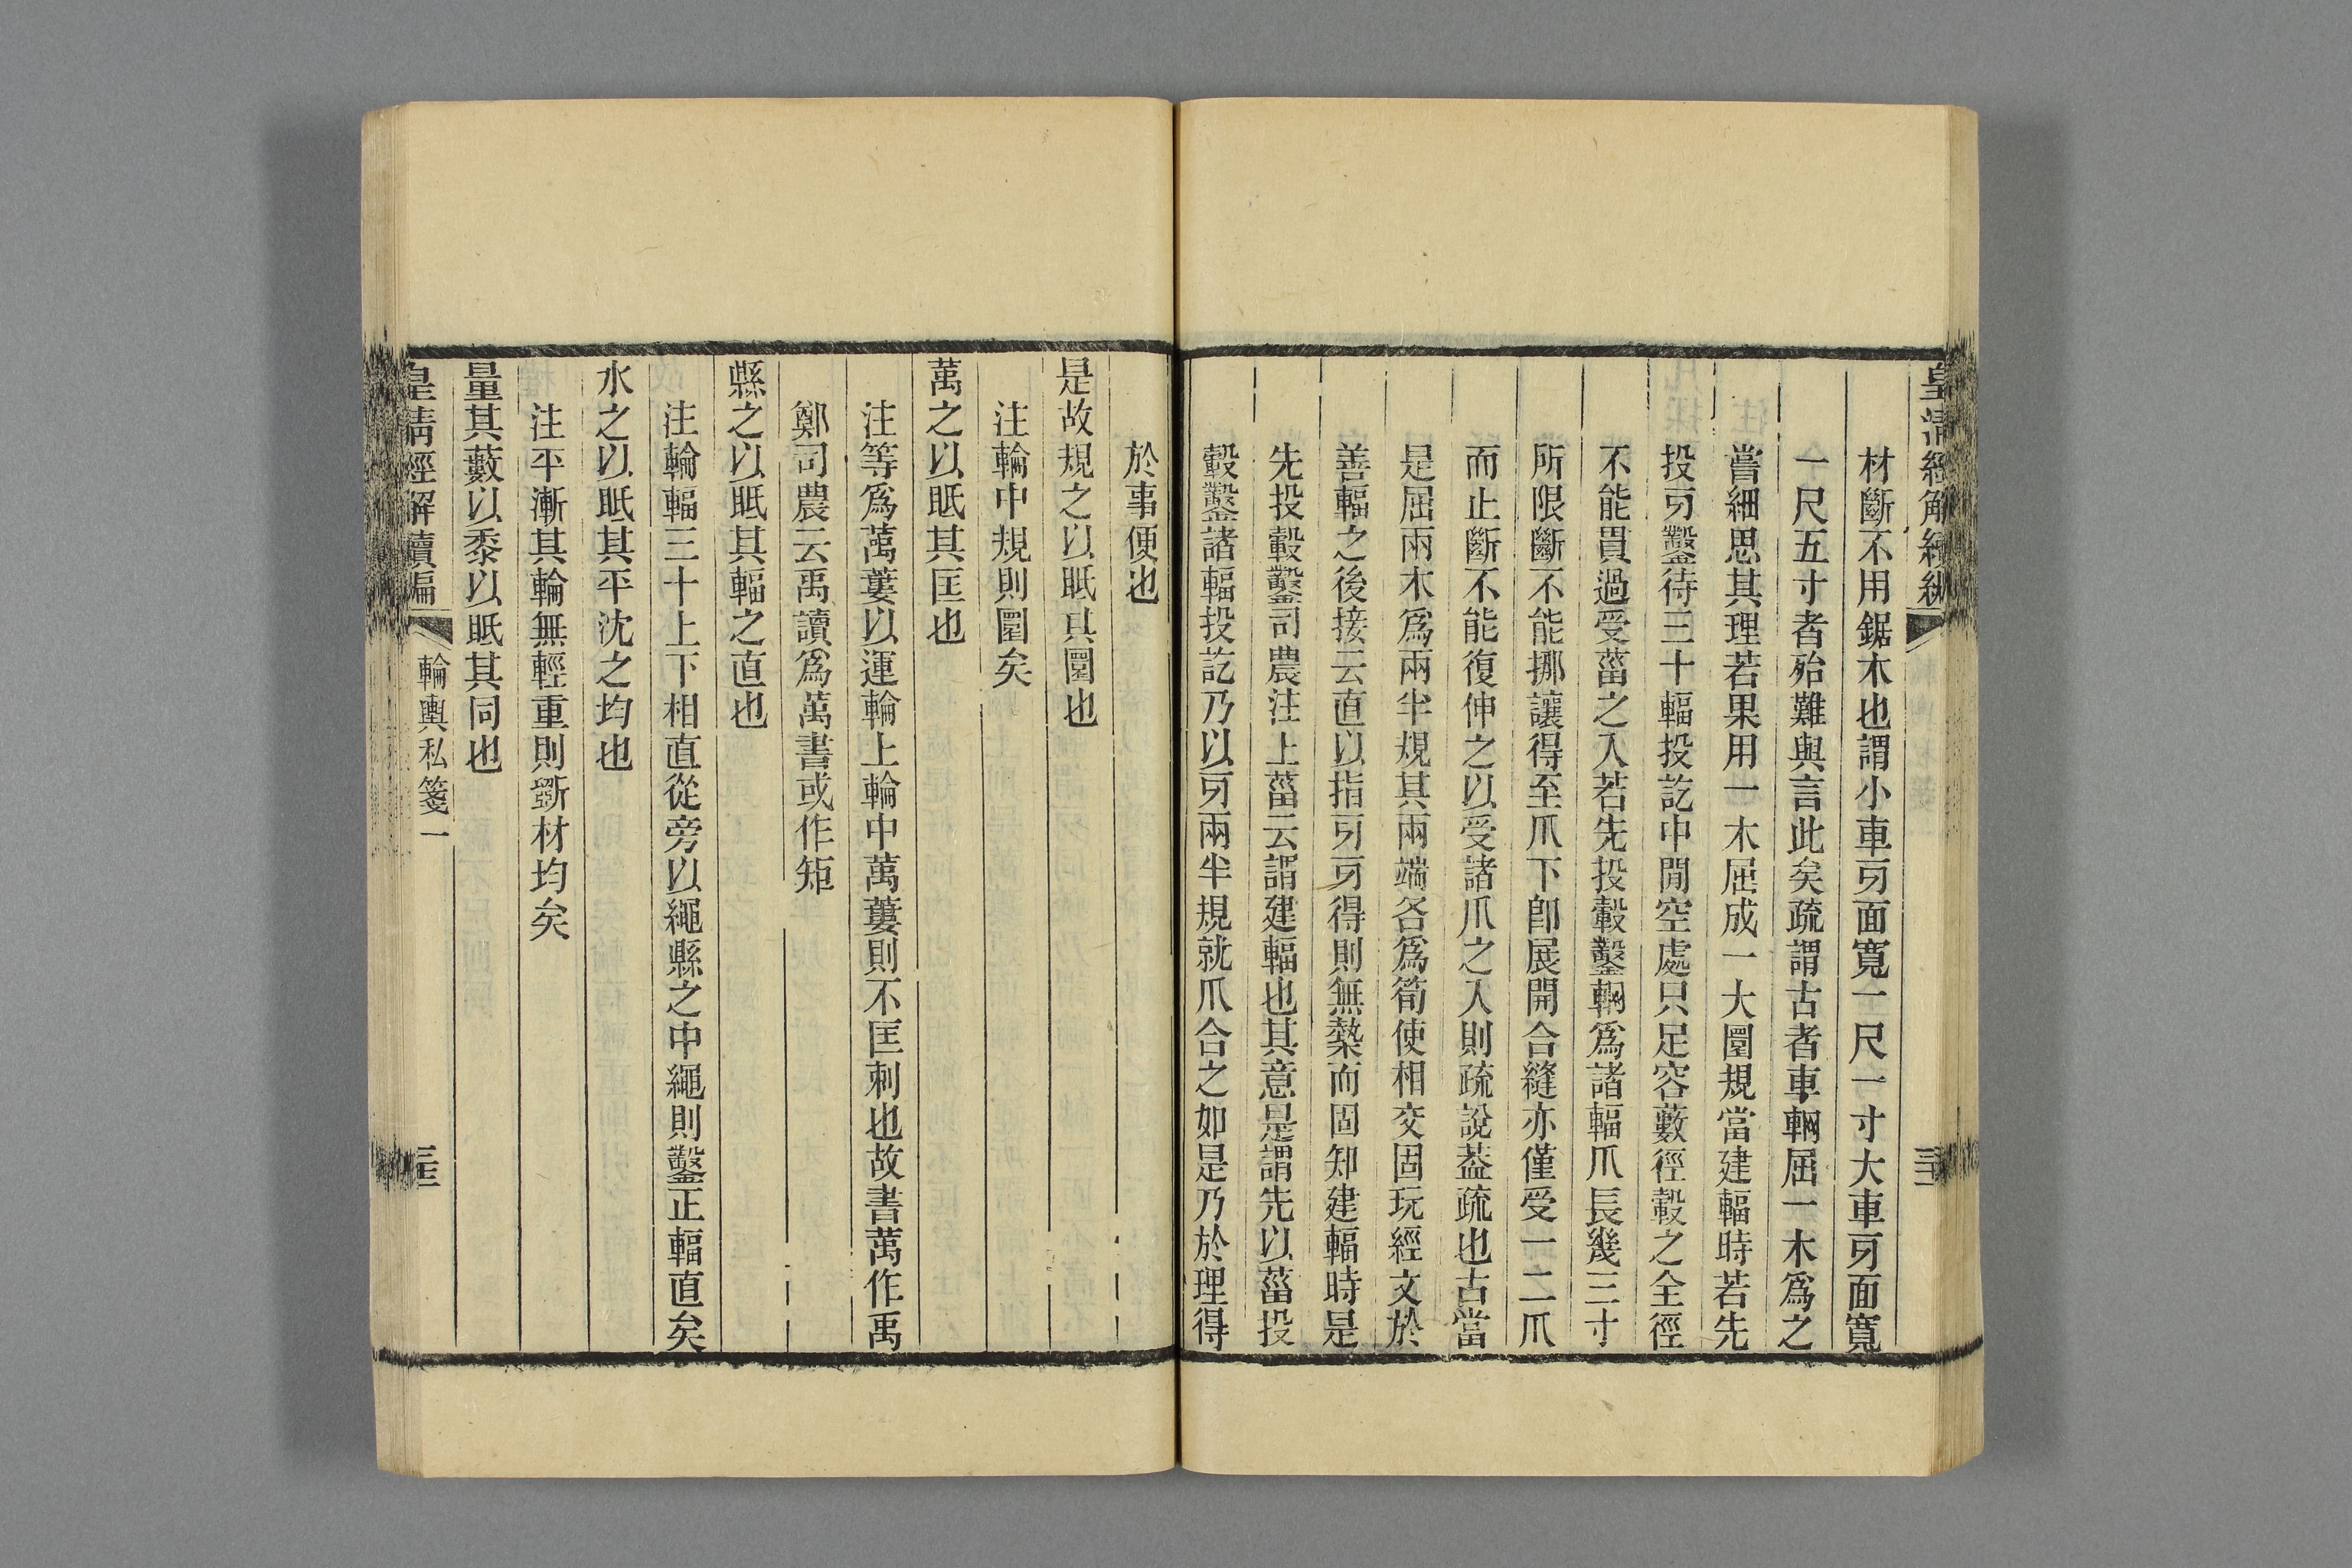 皇清經解續編
材斷不用鋸木也謂小車㸦面寬一尺一寸大車㸦面寬
一尺五寸者殆難與言此矣疏謂古者車輞屈一木爲之
嘗細思其理若果用一木屈成一大圜規當建輻時若先
投㸦鑿待三十輻投訖中閒空處只足容藪徑轂之全徑
不能貫過受菑之入若先投轂鑿輞爲諸輻爪長幾三寸
所限斷不能挪讓得至爪下卽展開合縫亦僅受一二爪
而止斷不能復伸之以受諸爪之入則疏說葢疏也古當
是屈兩木爲兩半規其兩端各爲筍使相交固玩經文於
善輻之後接云直以指㸦㸦得則無槷而固知建輻時是
先投轂鑿司農注上菑云謂建輻也其意是謂先以菑投
轂鑿諸輻投訖乃以㸦兩半規就爪合之如是乃於理得
於事便也
是故規之以眡其圜也
注輪中規則圜矣
萬之以眡其匡也
注等爲萬蔞以運輪上輪中萬蔞則不匡刺也故書萬作禹
鄭司農云禹讀爲萬書或作矩
縣之以眡其輻之直也
注輪輻三十上下相直從旁以繩縣之中繩則鑿正輻直矣
水之以眡其平沈之均也
注平漸其輪無輕重則斲材均矣
量其藪以黍以眡其同也
皇清經解續編
輪輿私箋一